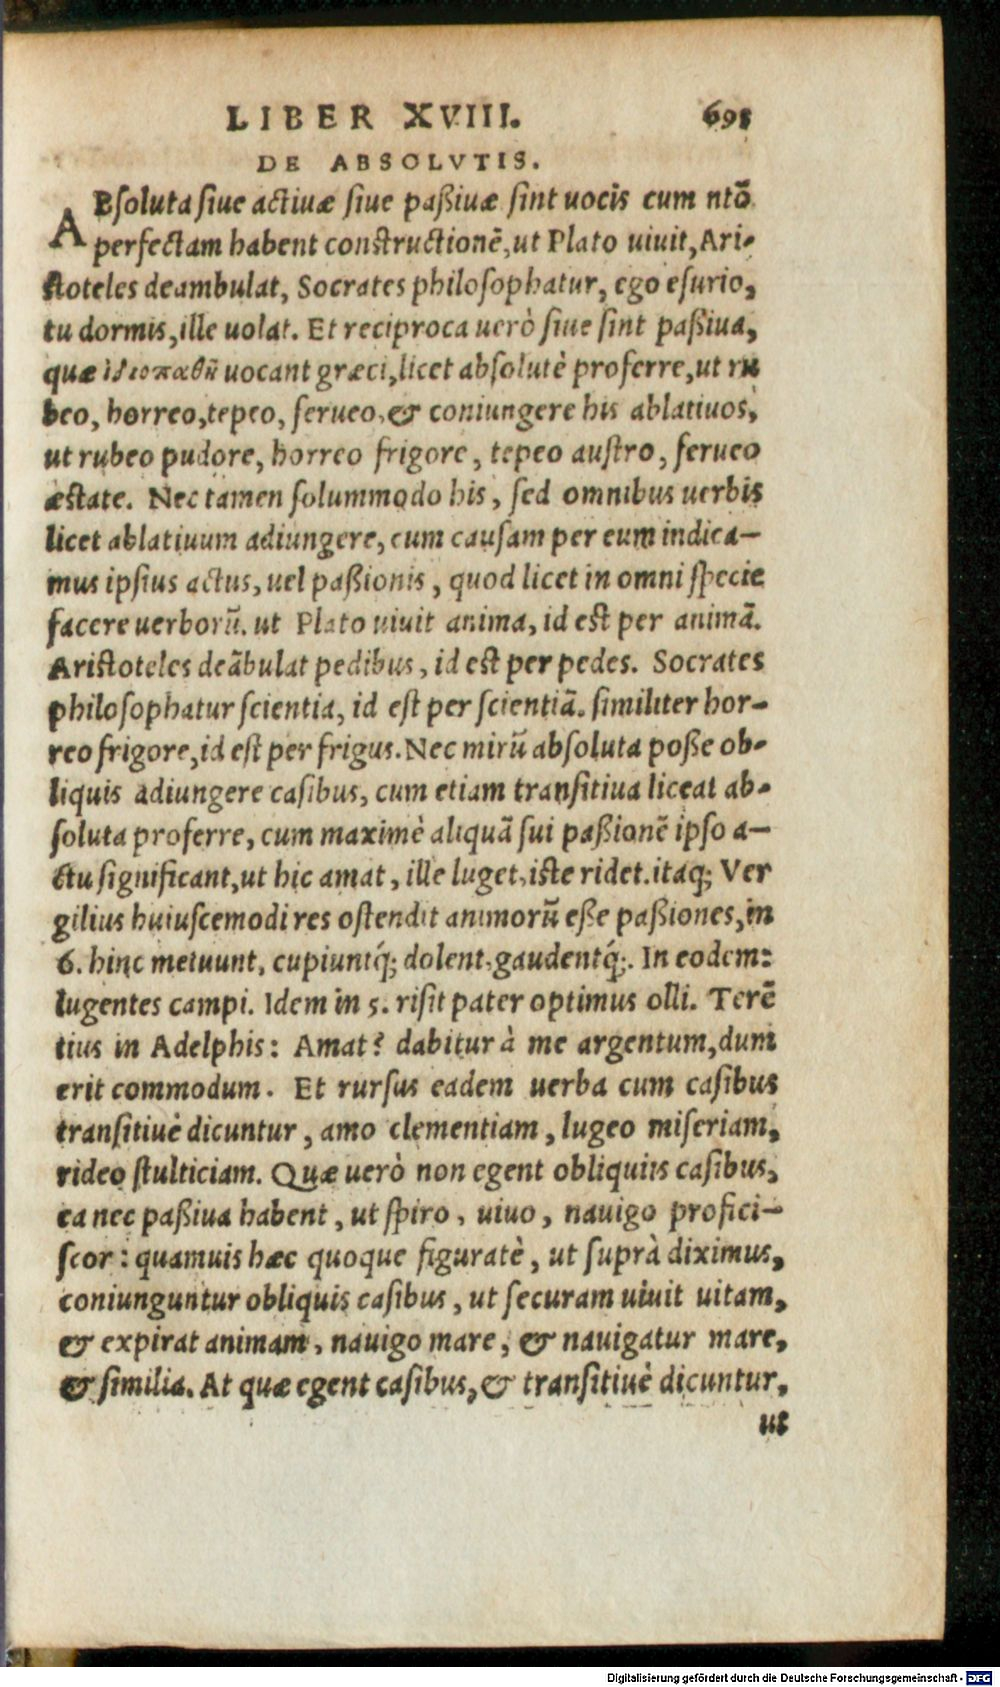 LIBER XVIII. 691
DE ABSOLVTIS.
ABsoluta siue actiuæ siue paßiuæ sint uocis cum ntõ
perfectam habent constructionẽ, ut Plato uiuit, Ari-
stoteles deambulat, Socrates philosophatur, ego esurio,
tu dormis, ille uolat. Et reciproca uerò siue sint paßiua,
quæ ἰδιοπαθῆ uocant græci, licet absolutè proferre, ut ru
beo, horreo, tepeo, ferueo, & coniungere his ablatiuos,
ut rubeo pudore, horreo frigore, tepeo austro, ferueo
æstate. Nec tamen solummodo his, sed omnibus uerbis
licet ablatiuum adiungere, cum causam per eum indica-
mus ipsius actus, uel paßionis, quod licet in omni specie
facere uerborũ. ut Plato uiuit anima, id est per animã.
Aristoteles deãbulat pedibus, id est per pedes. Socrates
philosophatur scientia, id est per scientiã. similiter hor-
reo frigore, id est per frigus. Nec mirũ absoluta poße ob-
liquis adiungere casibus, cum etiam transitiua liceat ab-
soluta proferre, cum maximè aliquã sui paßionẽ ipso a-
ctu significant, ut hic amat, ille luget, iste ridet. itaq; Ver
gilius huiuscemodi res ostendit animorũ eße paßiones, in
6. hinc metuunt, cupiuntq́; dolent, gaudentq́;. In eodem:
lugentes campi. Idem in 5. risit pater optimus olli. Terẽ
tius in Adelphis: Amat? dabitur à me argentum, dum
erit commodum. Et rursus eadem uerba cum casibus
transitiuè dicuntur, amo clementiam, lugeo miseriam,
rideo stulticiam. Quæ uerò non egent obliquis casibus,
ea nec paßiua habent, ut spiro, uiuo, nauigo profici-
scor: quamuis hæc quoque figuratè, ut suprà diximus,
coniunguntur obliquis casibus, ut securam uiuit uitam,
& expirat animam, nauigo mare, & nauigatur mare,
& similia. At quæ egent casibus, & transitiuè dicuntur,
ut
Digitalisierung gefördert durch die Deutsche Forschungsgemeinschaft - DFG